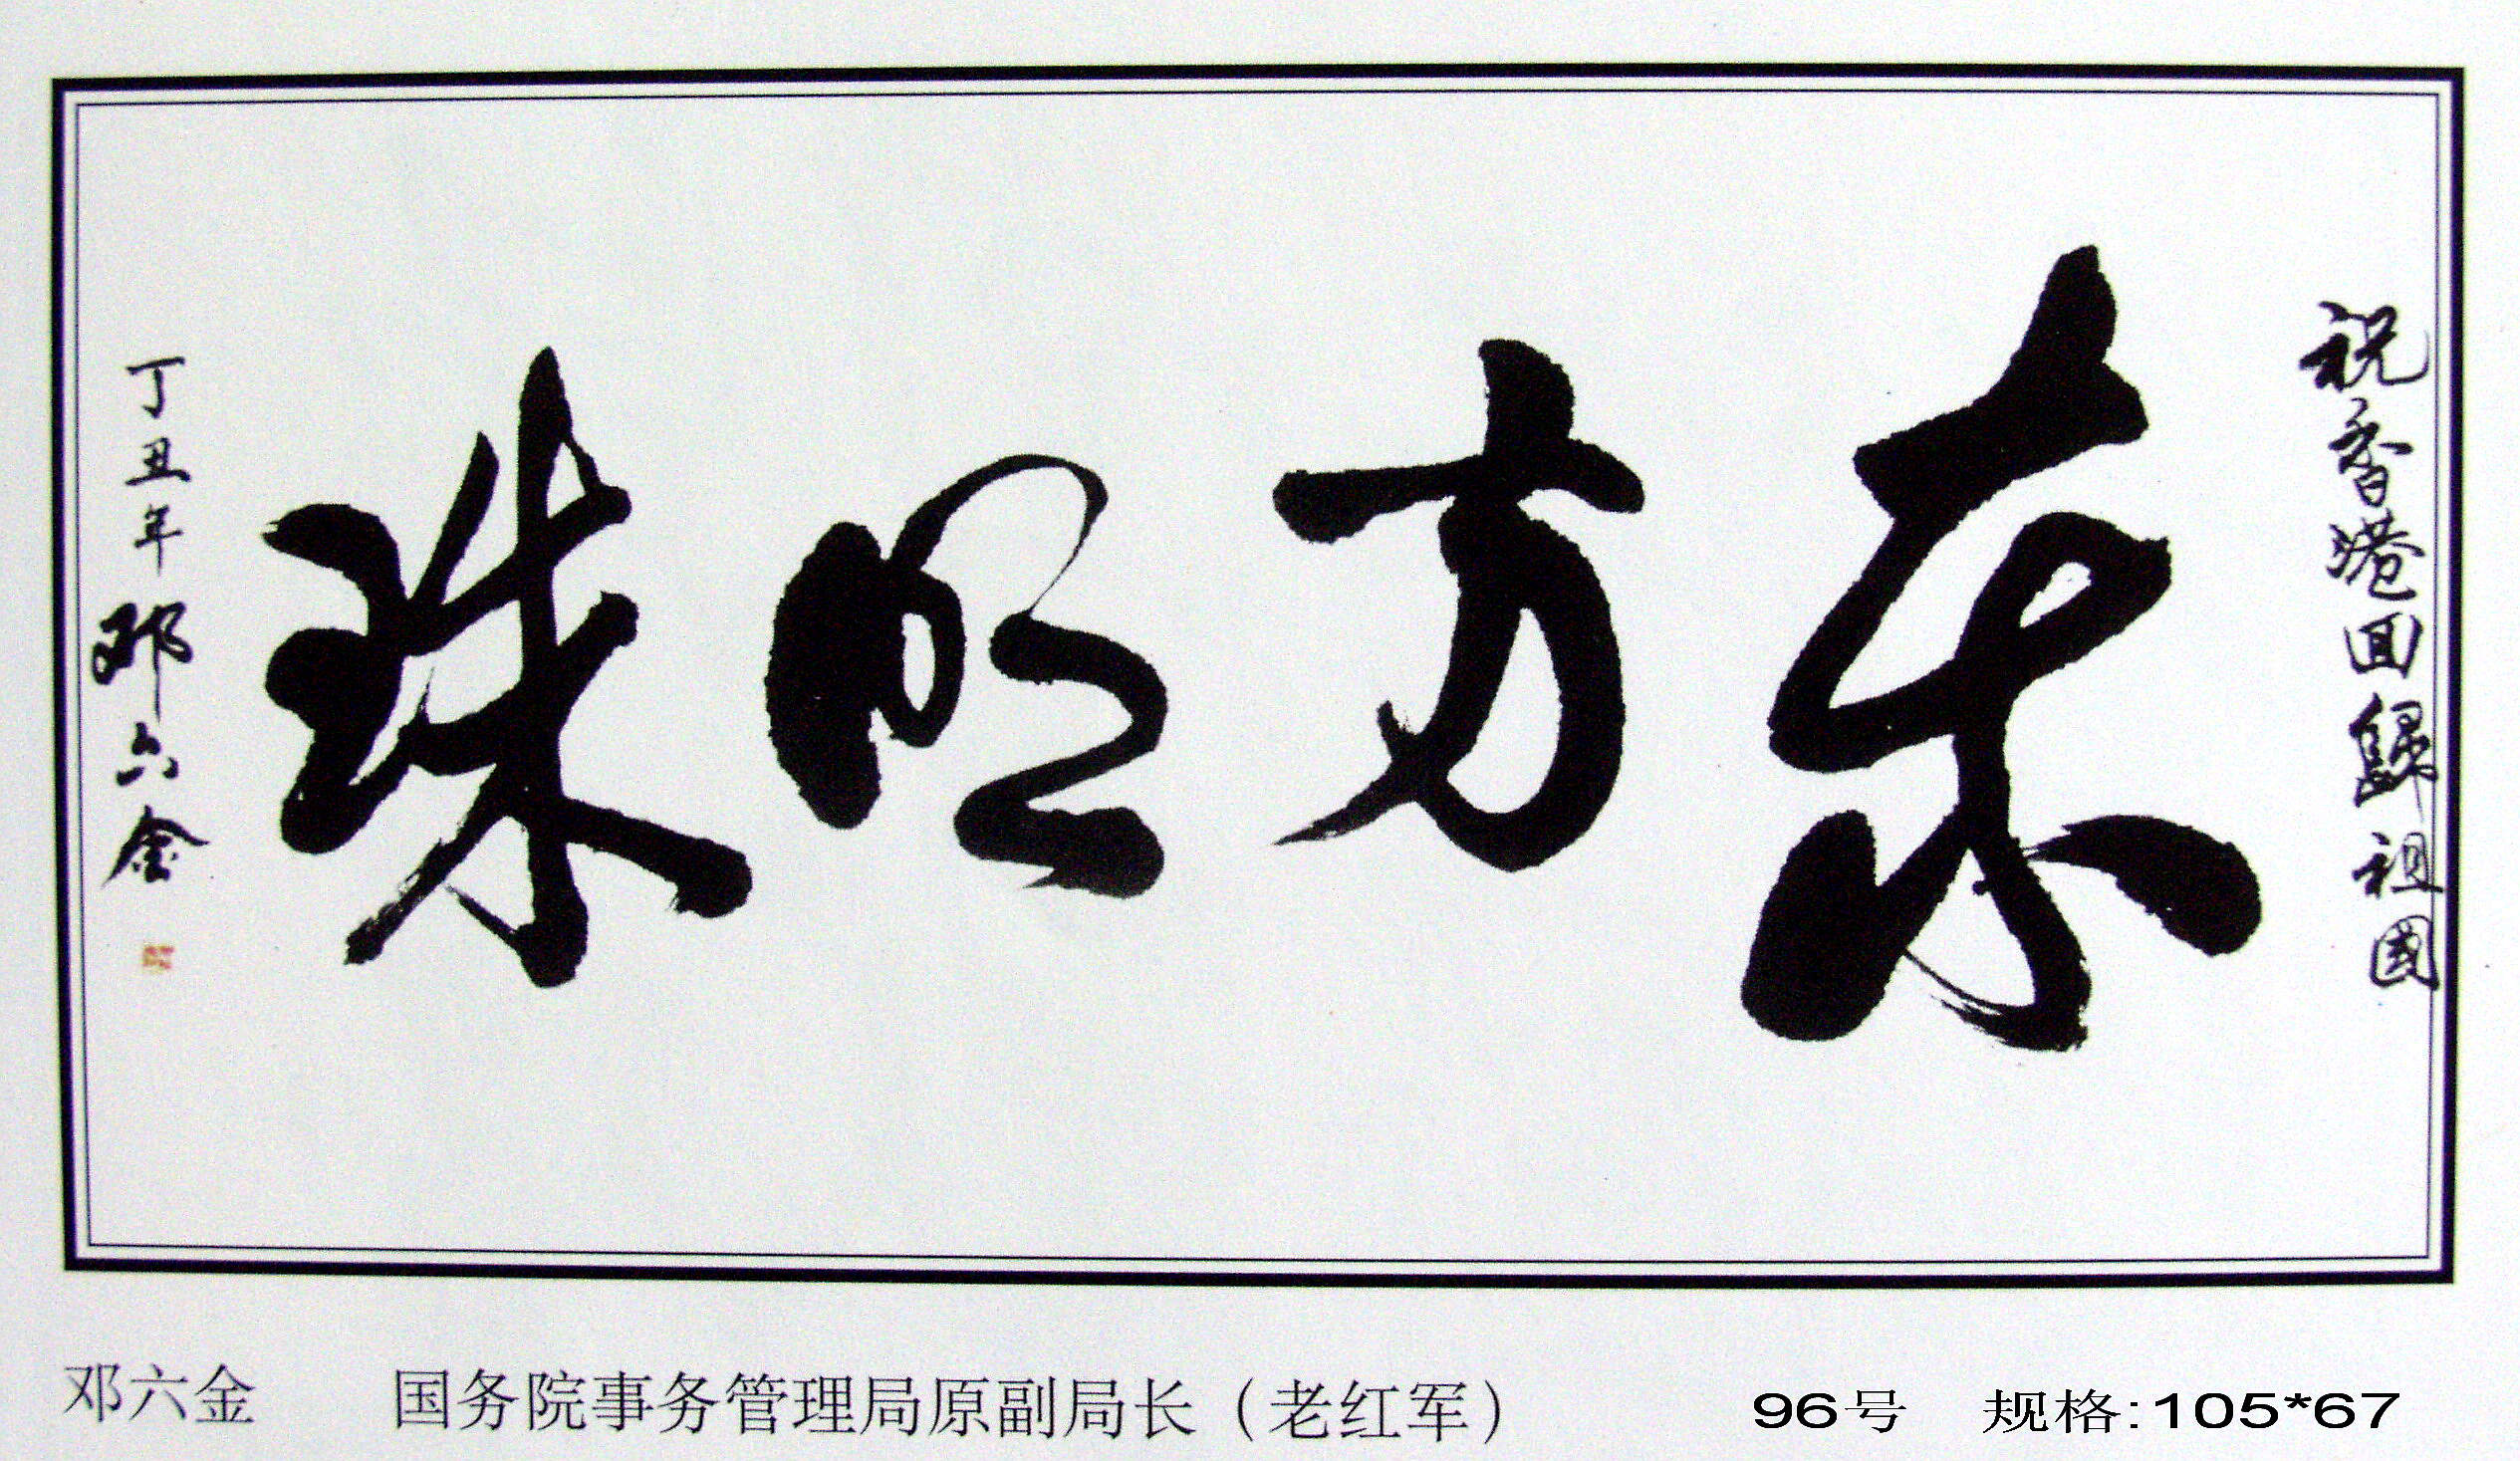 祝香港回歸祖國
东方明珠
丁丑年 邓六金
邓六金 国务院事务管理局原副局长（老红军） 96号 规格:105*67